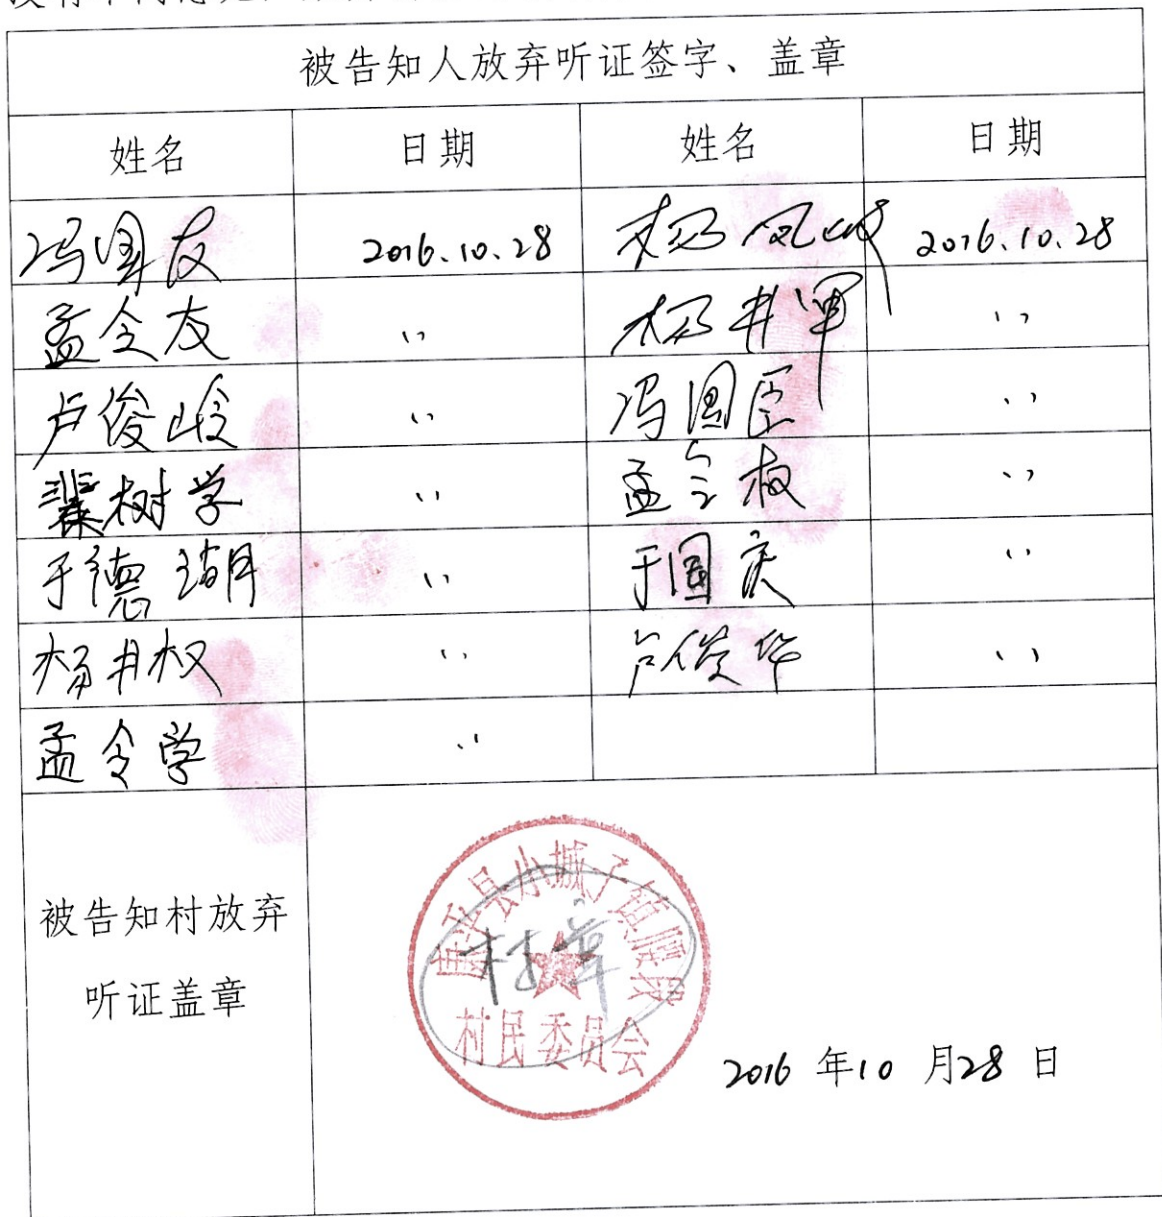 被告知人放弃听证签字、盖章
姓名 日期 姓名 日期
冯国友 2016.10.28 杨凤岐 2016.10.28
孟令友 〃 杨井军 〃
卢俊岭 〃 冯国臣 〃
树学 〃 孟令权 〃
于德湖 〃 于国庆 〃
杨井权 〃 卢俊华 〃
孟令学 〃
被告知村放弃
听证盖章
康平县小城子镇腰段
村章
村民委员会
2016 年10 月28 日